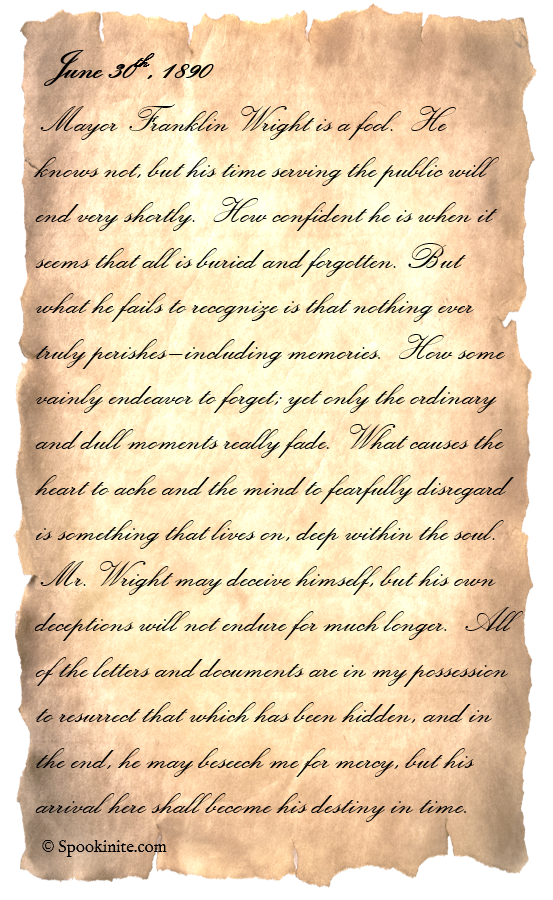 June 30th, 1890
Mayor Franklin Wright is a fool. He
knows not, but his time serving the public will
end very shortly. How confident he is when it
seems that all is buried and forgotten. But
what he fails to recognize is that nothing ever
truly perishes—including memories. How some
vainly endeavor to forget; yet only the ordinary
and dull moments really fade. What causes the
heart to ache and the mind to fearfully disregard
is something that lives on, deep within the soul.
Mr. Wright may deceive himself, but his own
deceptions will not endure for much longer. All
of the letters and documents are in my possession
to resurrect that which has been hidden, and in
the end, he may beseech me for mercy, but his
arrival here shall become his destiny in time.
© Spookinite.com